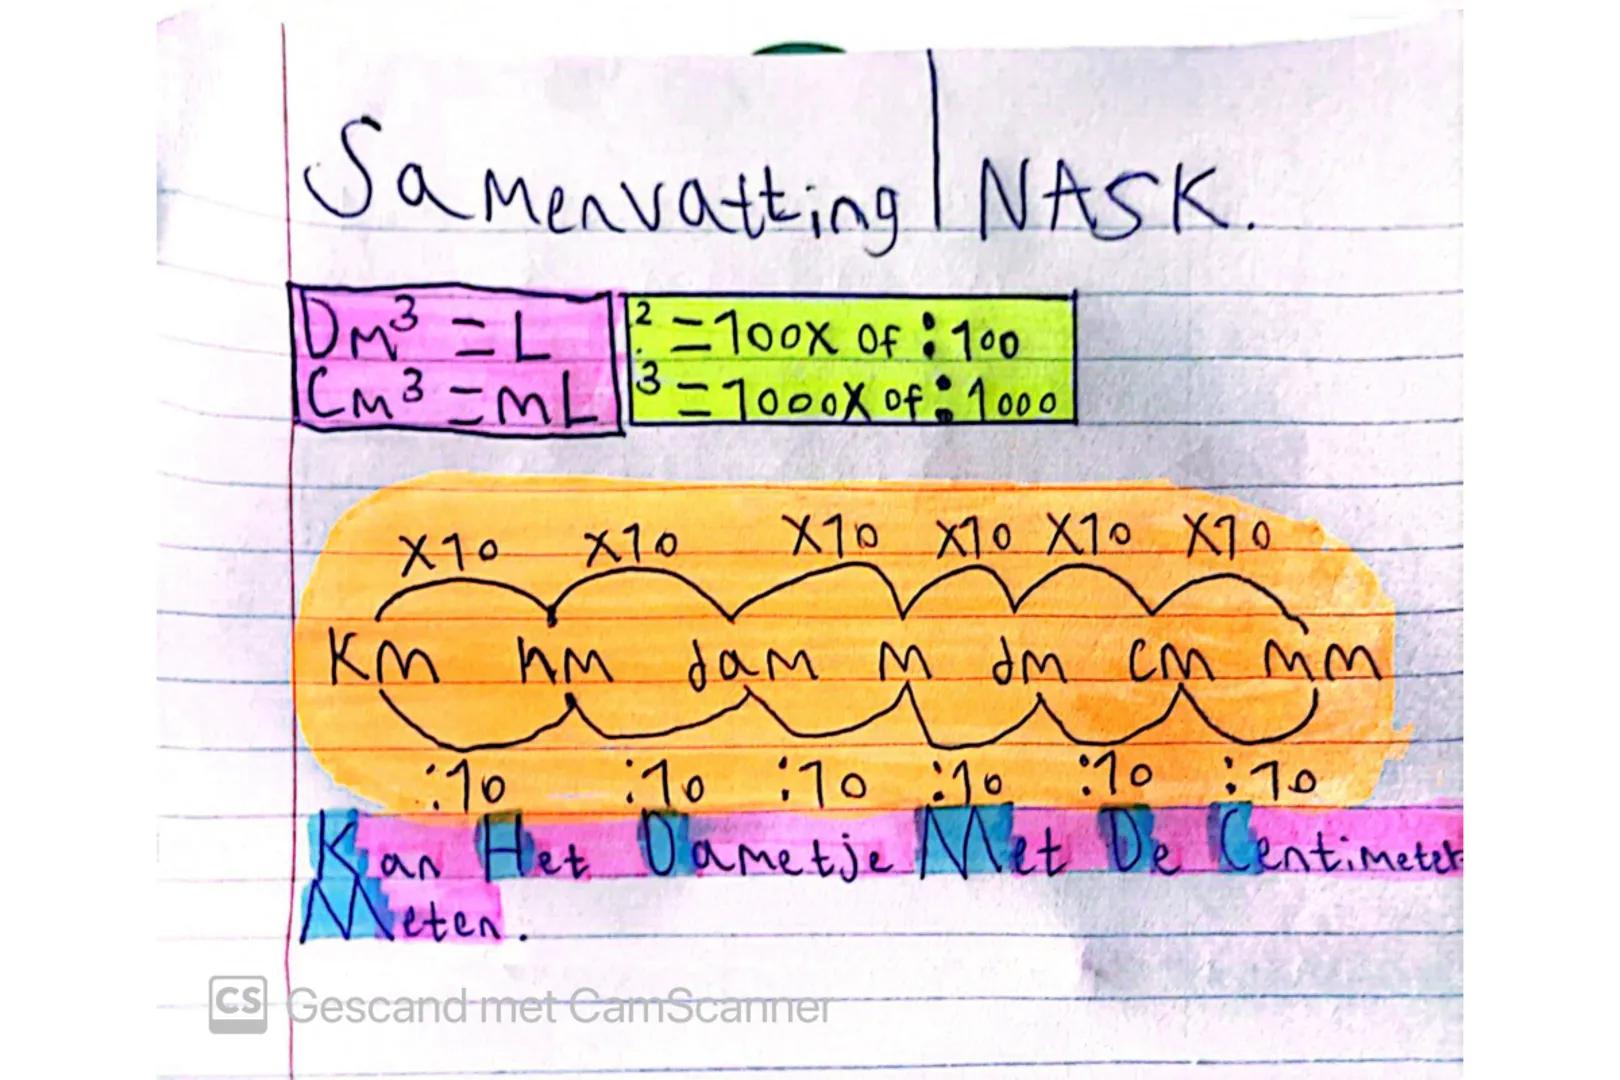 Samenvatting | NASK.
Dm³ = L
Cm³ = mL
² = 100x of : 100
³ = 1000x of : 1000
x10 x10 x10 x10 x10 x10
Km hm dam m dm cm mm
:10 :10 :10 :10 :10 :10
Kan Het Dametje Met De Centimeter
Meten.
CS Gescand met CamScanner